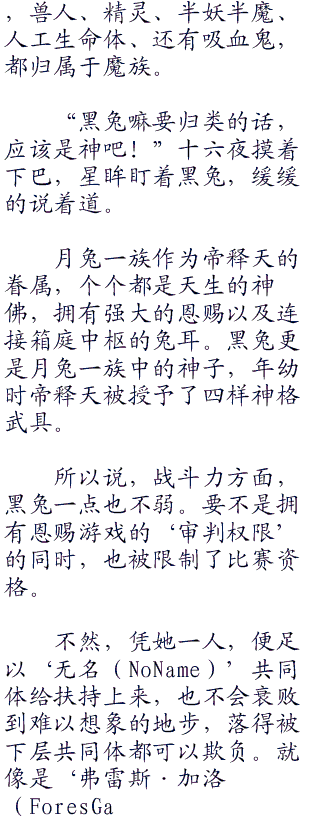 ，兽人、精灵、半妖半魔、
人工生命体、还有吸血鬼，
都归属于魔族。
“黑兔嘛要归类的话，
应该是神吧！”十六夜摸着
下巴，星眸盯着黑兔，缓缓
的说着道。
月兔一族作为帝释天的
眷属，个个都是天生的神
佛，拥有强大的恩赐以及连
接箱庭中枢的兔耳。黑兔更
是月兔一族中的神子，年幼
时帝释天被授予了四样神格
武具。
所以说，战斗力方面，
黑兔一点也不弱。要不是拥
有恩赐游戏的‘审判权限’
的同时，也被限制了比赛资
格。
不然，凭她一人，便足
以‘无名（NoName）’共同
体给扶持上来，也不会衰败
到难以想象的地步，落得被
下层共同体都可以欺负。就
像是‘弗雷斯·加洛
（ForesGa